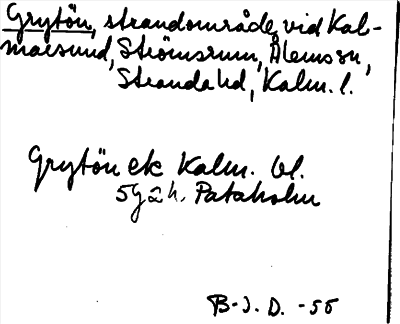 Grytön, strandområde vid Kal-
marsund, Strömsrum, Ålems sn,
Stranda hd, Kalm. l.
Grytön ek Kalm. bl.
5g2h. Pataholm
B.J.D. -55